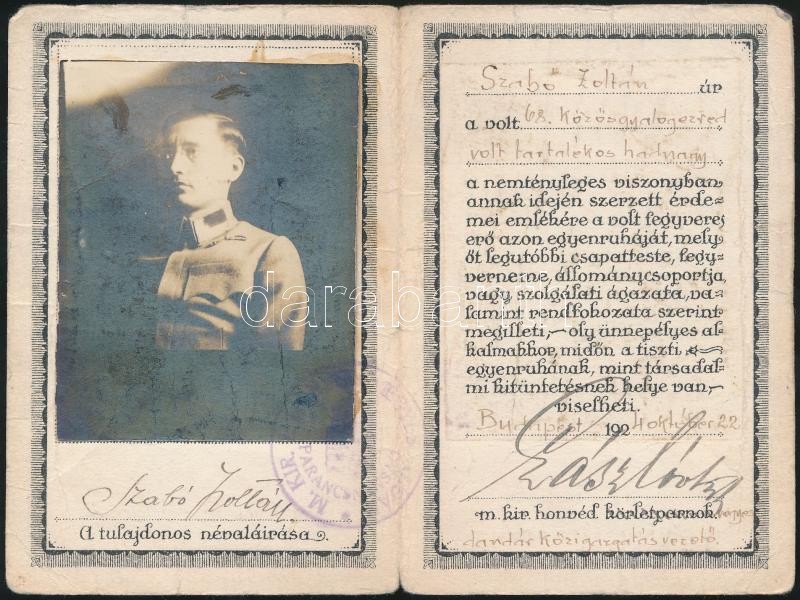 Szabó Zoltán
A tulajdonos névaláirása.
M. KIR.
PARANCS
Szabó Zoltán úr
a volt 68. közösgyalogezred
volt tartalékos hadnagy
a nemtényleges viszonyban
annak idején szerzett érde=
mei emlékére a volt fegyveres
erő azon egyenruháját, mely
őt legutóbbi csapatteste, fegy=
verneme, állománycsoportja,
vagy szolgálati ágazata, va=
lamint rendfokozata szerint
megilleti, – oly ünnepélyes al=
kalmakkor, midőn a tiszti
egyenruhának, mint társadal=
mi kitüntetésnek helye van, –
viselheti.
Budapest, 1924 október 22
m. kir. honvéd körletparnok.
dandár közigazgatás vezető.
darabanth